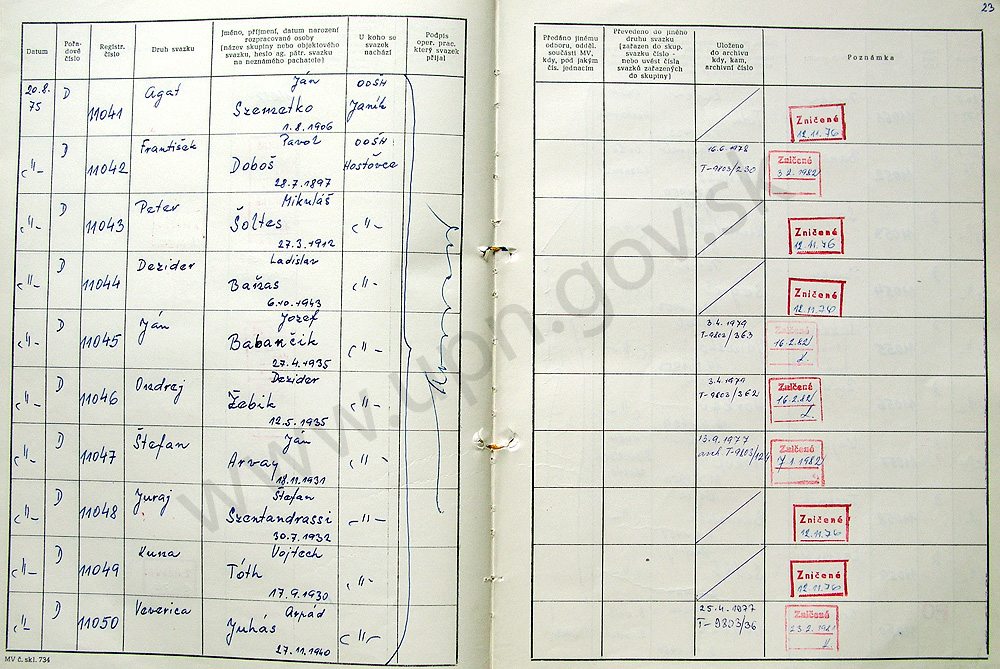 23
Datum
Pořadové číslo
Registr. číslo
Druh svazku
Jméno, příjmení, datum narození rozpracované osoby (název skupiny nebo objektového svazku, heslo ag. pátr. svazku na neznámého pachatele)
U koho se svazek nachází
Podpis oper. prac. který svazek přijal
Předáno jinému odboru, odděl. součásti MV, kdy, pod jakým čís. jednacím
Převedeno do jiného druhu svazku (zařazen do skup. svazku číslo - nebo uvést čísla svazků zařazených do skupiny)
Uloženo do archivu kdy, kam, archivní číslo
Poznámka
20.8. 75 D 11041 Agat Ján Szemetko 1.8.1906 OOŠH Janík Zničené 12.11.76
-"- D 11042 František Pavol Doboš 28.7.1897 OOŠH Hosťovce 16.6.1978 T-9803/230 Zničené 3.2.1982
-"- D 11043 Peter Mikuláš Šoltes 27.3.1912 -"- Zničené 12.11.76
-"- D 11044 Dezider Ladislav Baňas 6.10.1943 -"- Zničené 12.11.76
-"- D 11045 Ján Jozef Babančik 27.4.1935 -"- 3.4.1979 T-9803/363 Zničené 16.2.82
-"- D 11046 Ondrej Dezider Žebik 12.5.1935 -"- 3.4.1979 T-9803/362 Zničené 16.2.82
-"- D 11047 Štefan Ján Arvay 18.11.1931 -"- 13.9.1977 arch. T-9803/124 Zničené 7.1.1982
-"- D 11048 Juraj Štefan Szentandrassi 30.7.1932 -"- Zničené 12.11.76
-"- D 11049 Kuna Vojtech Tóth 17.9.1930 -"- Zničené 12.11.76
-"- D 11050 Veverica Arpád Juhás 27.11.1940 -"- 25.4.1977 T-9803/36 Zničené 23.2.1981
MV č. skl. 734
www.upn.gov.sk